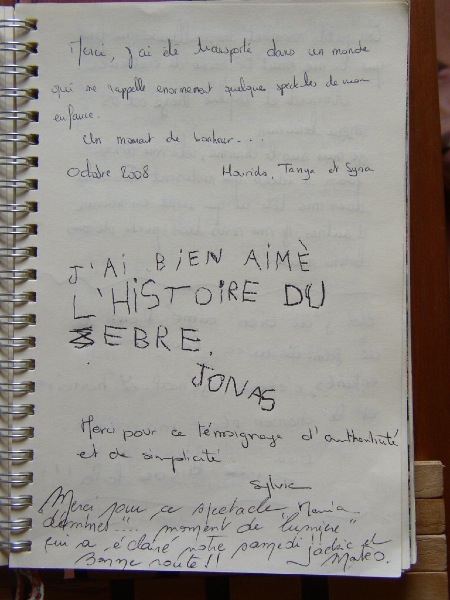 Merci, j'ai été transporté dans un monde
qui me rappelle enormement quelques spectacles de mon
enfance.
Un moment de bonheur...
Octobre 2008 Mourida, Tanya et Syna
J'AI BIEN AIMÈ
L'HISTOIRE DU
ZEBRE.
JONAS
Merci pour ce témoignage d'authenticité
et de simplicité
Sylvie
Merci pour ce spectacle,
"moment de lumière"
qui a éclairé notre samedi!! Jackie et
Bonne route!! Matéo.